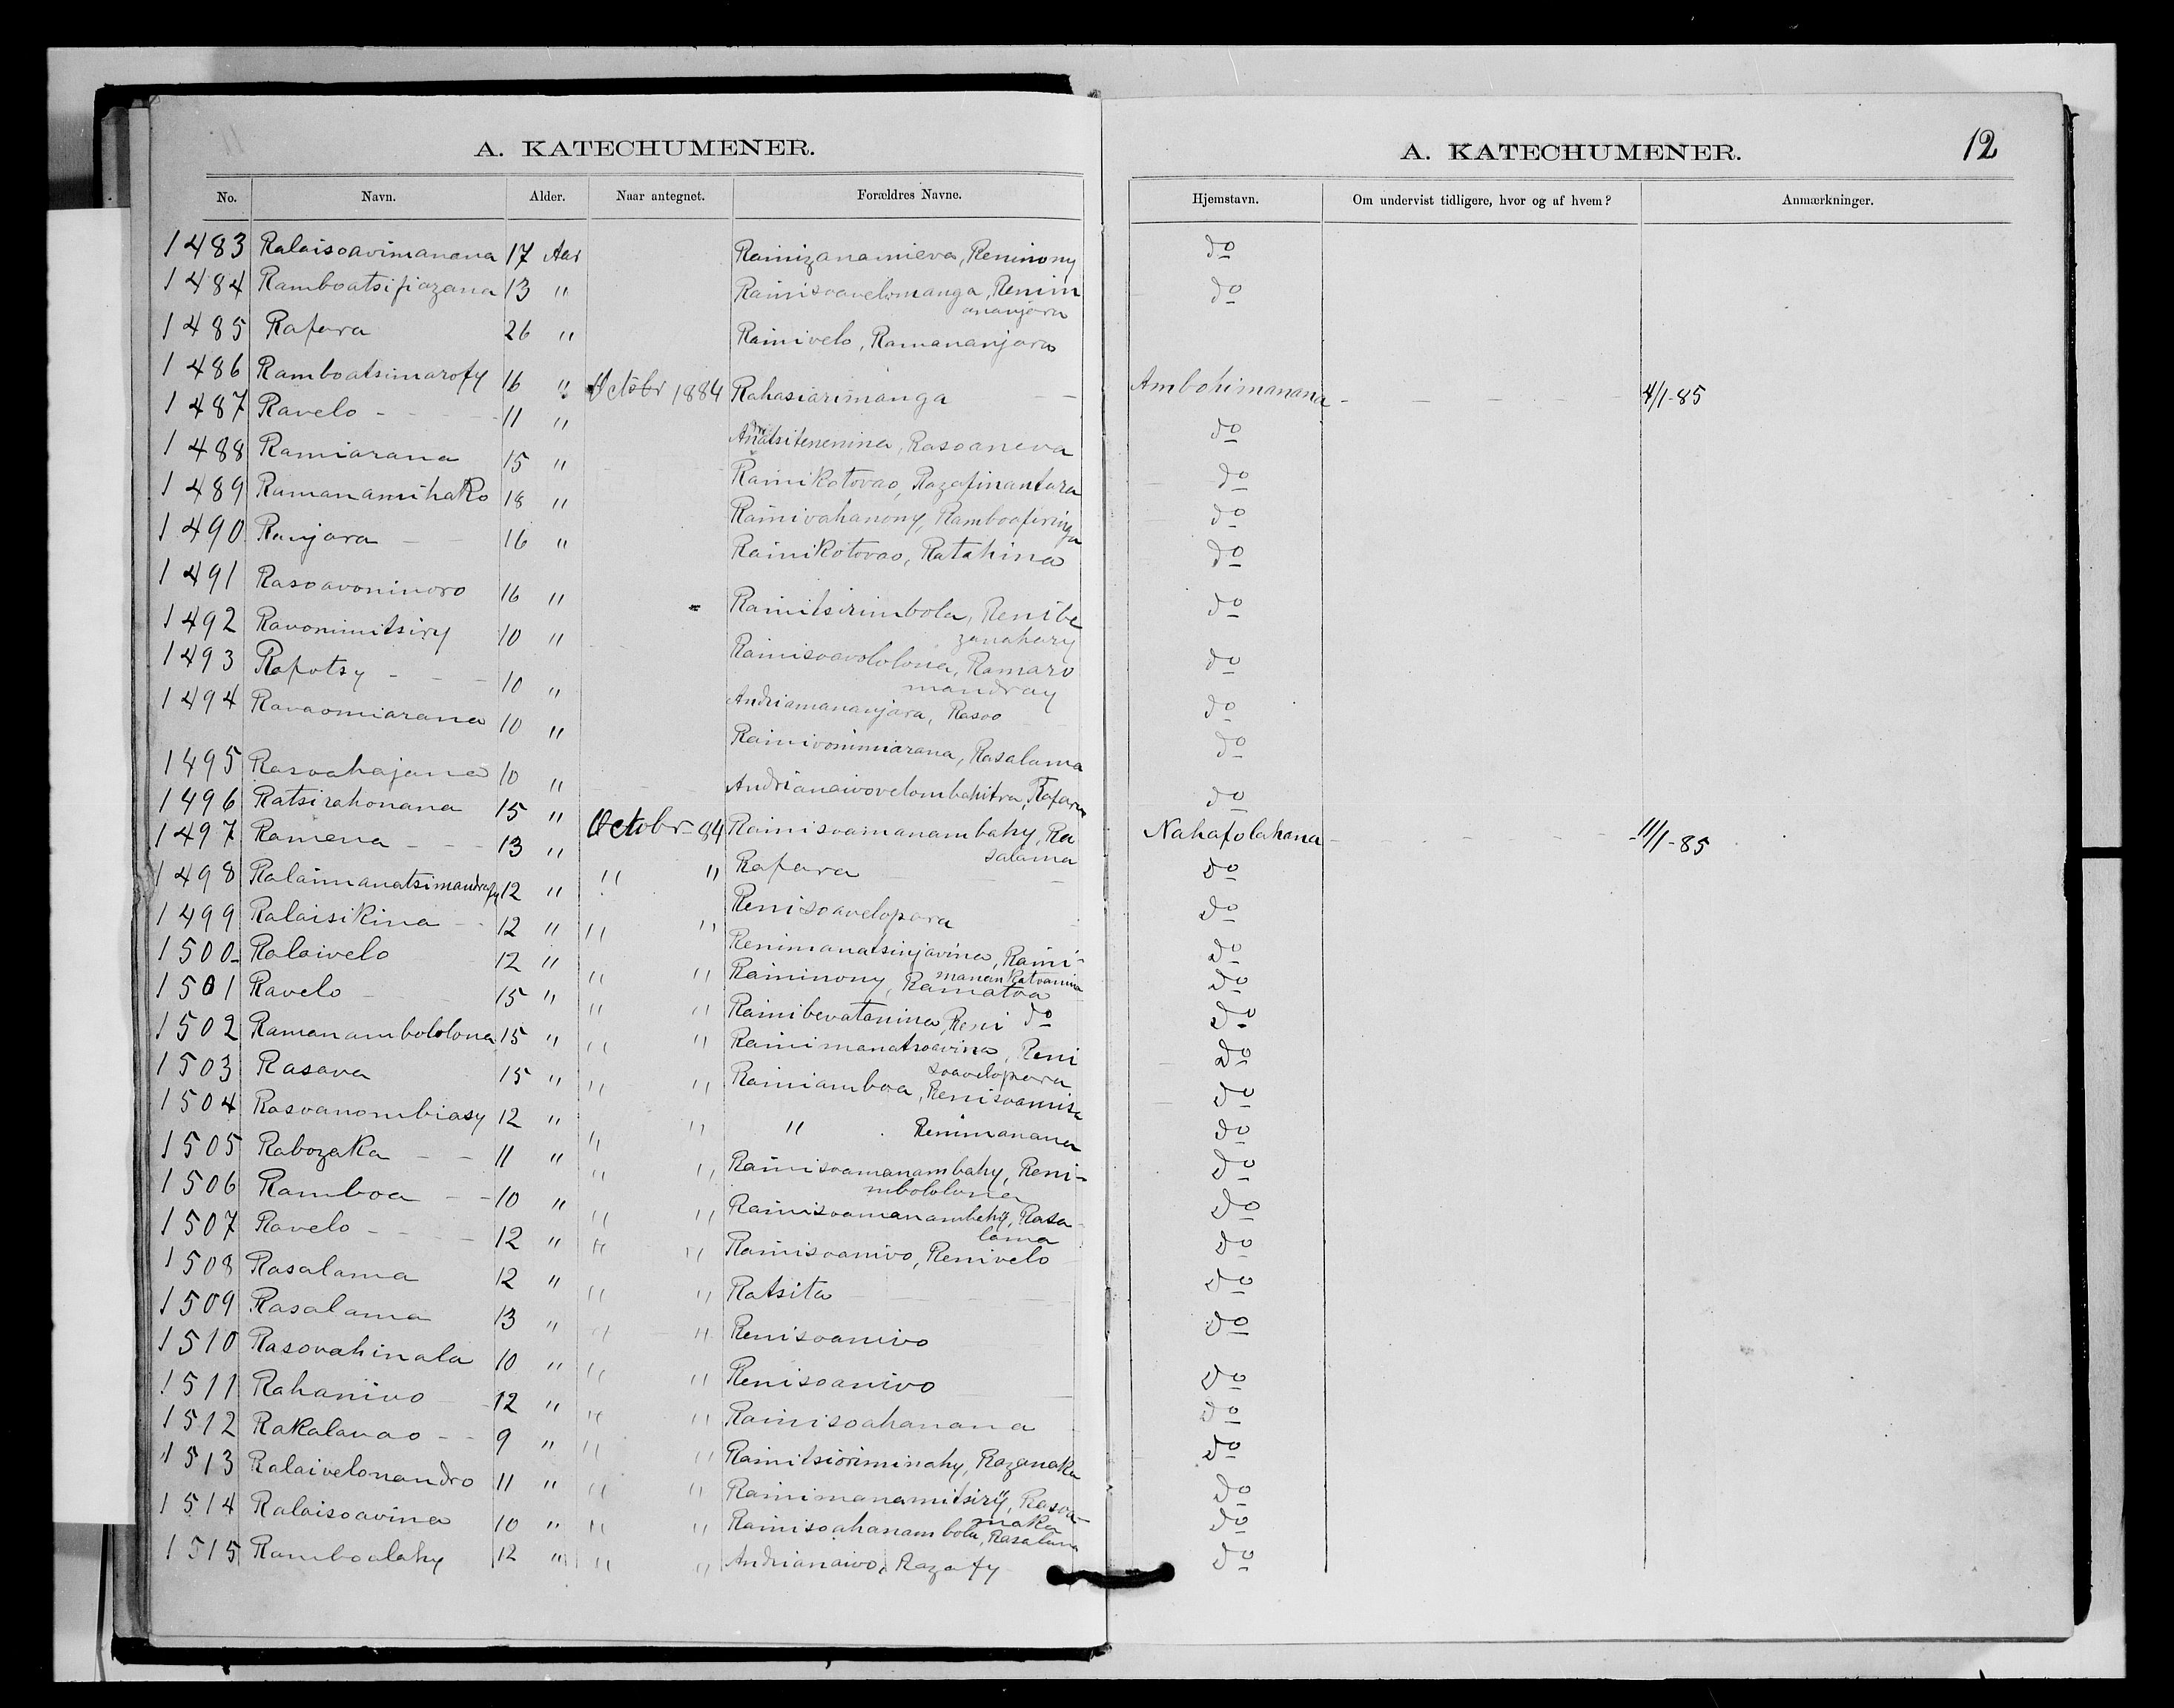 A. KATECHUMENER.
No. Navn. Alder. Naar antegnet. Forældres Navne.
1483 Ralaisoavimanana 17 Aar Rainizanamieva, Reninony
1484 Ramboatsifiazana 13 " Rainisoavelomanga, Renim
ananjara
1485 Rafara 26 " Rainivelo, Ramananjara
1486 Ramboatsimarofy 16 " Octobr 1884 Rahasiarimanga
1487 Ravelo - - - 11 " Andriatsitenenina, Rasoaneva
1488 Ramiarana 15 " Rainikotovao, Razafinantara
1489 Ramanamihako 18 " Rainivahanony, Ramboafiringa
1490 Ranjara - - 16 " Rainikotovao, Ratahina
1491 Rasoavoninoro 16 " Rainitsirimbola, Renibe
zanahary
1492 Ravonimitsiry 10 " Rainisoavololona, Ramaro
mandray
1493 Rapotsy - - - 10 " Andriamananjara, Rasoo
1494 Ravaomiarana 10 " Rainivonimiarana, Rasalama
1495 Rasoahajana 10 " Andrianaivovelombahitra, Rafara
1496 Ratsirahonana 15 "
1497 Ramena - - - 13 " Octobr - 84 Rainisoamanambahy, Ra
salama
1498 Ralaimanatsimandrafy 12 " " " Rafara
1499 Ralaisikina - - 12 " " " Renisoavelopara
1500 Ralaivelo 12 " " " Renimanatsinjavina, Raini-
manankatvanina
1501 Ravelo - 15 " " " Raininony, Ramatoa
1502 Ramanambololona 15 " " " Rainibevatanina, Reni do
1503 Rasava 15 " " " Rainimanatsoavina, Reni
soavelopara
1504 Rasoanombiasy 12 " " " Rainiamboa, Renisoamisa
1505 Rabozaka - - 11 " " " " Renimanana
1506 Ramboa - - 10 " " " Rainisoamanambahy, Reni-
mbololona
1507 Ravelo - - - - 12 " " " Rainisoamanambahy, Rasa
lama
1508 Rasalama 12 " " " Rainisoanivo, Renivelo
1509 Rasalama 13 " " " Ratsita
1510 Rasovahinala 10 " " " Renisoanivo
1511 Rahanivo 12 " " " Renisoanivo
1512 Rakalavao - - 9 " " " Rainisoahanana
1513 Ralaivelonandro 11 " " " Rainitsioriminahy, Razanaka
1514 Ralaisoavina 10 " " " Rainimanamitsiry, Rasoa-
maka
1515 Ramboalahy 12 " " " Rainisoahanambola, Rasalama
Andrianaivo, Razafy
A. KATECHUMENER. 12
Hjemstavn. Om undervist tidligere, hvor og af hvem? Anmærkninger.
do
do
Ambohimanana - - - - 4/1-85
do
do
do
do
do
do
do
do
do
Nahafolahana - - - - 11/1-85
do
do
do
do
do
do
do
do
do
do
do
do
do
do
do
do
do
do
do